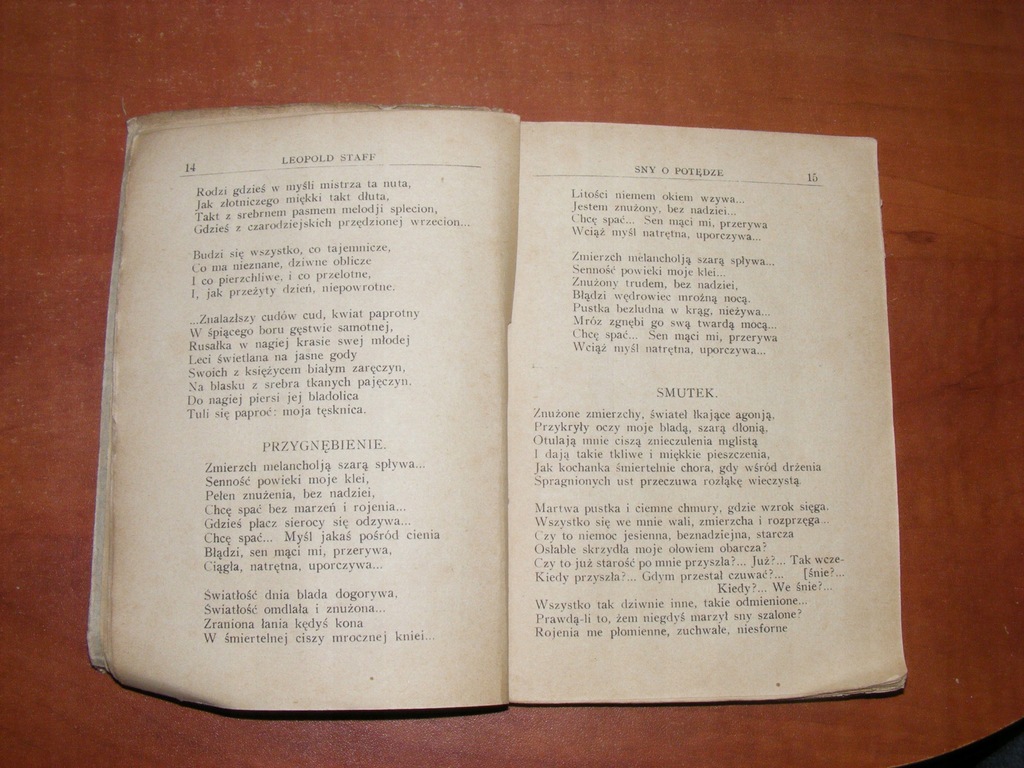 14
LEOPOLD STAFF
Rodzi gdzieś w myśli mistrza ta nuta,
Jak złotniczego miękki takt dłuta,
Takt z srebrnem pasmem melodji splecion,
Gdzieś z czarodziejskich przędzionej wrzecion...
Budzi się wszystko, co tajemnicze,
Co ma nieznane, dziwne oblicze
I co pierzchliwe, i co przelotne,
I, jak przeżyty dzień, niepowrotne.
...Znalazłszy cudów cud, kwiat paprotny
W śpiącego boru gęstwie samotnej,
Rusałka w nagiej krasie swej młodej
Leci świetlana na jasne gody
Swoich z księżycem białym zaręczyn,
Na blasku z srebra tkanych pajęczyn.
Do nagiej piersi jej bladolica
Tuli się paproć: moja tęsknica.
PRZYGNĘBIENIE.
Zmierzch melancholją szarą spływa...
Senność powieki moje klei,
Pełen znużenia, bez nadziei,
Chcę spać bez marzeń i rojenia...
Gdzieś płacz sierocy się odzywa...
Chcę spać... Myśl jakaś pośród cienia
Błądzi, sen mąci mi, przerywa,
Ciągła, natrętna, uporczywa...
Światłość dnia blada dogorywa,
Światłość omdlała i znużona...
Zraniona łania kędyś kona
W śmiertelnej ciszy mrocznej kniei...
SNY O POTĘDZE
15
Litości niemem okiem wzywa...
Jestem znużony, bez nadziei...
Chcę spać... Sen mąci mi, przerywa
Wciąż myśl natrętna, uporczywa...
Zmierzch melancholją szarą spływa...
Senność powieki moje klei...
Znużony trudem, bez nadziei,
Błądzi wędrowiec mroźną nocą.
Pustka bezludna w krąg, nieżywa...
Mróz zgnębi go swą twardą mocą...
Chcę spać... Sen mąci mi, przerywa
Wciąż myśl natrętna, uporczywa...
SMUTEK.
Znużone zmierzchy, świateł łkające agonją,
Przykryły oczy moje bladą, szarą dłonią,
Otulają mnie ciszą znieczulenia mglistą
I dają takie tkliwe i miękkie pieszczenia,
Jak kochanka śmiertelnie chora, gdy wśród drżenia
Spragnionych ust przeczuwa rozłąkę wieczystą.
Martwa pustka i ciemne chmury, gdzie wzrok sięga.
Wszystko się we mnie wali, zmierzcha i rozprzęga...
Czy to niemoc jesienna, beznadziejna, starcza
Osłabłe skrzydła moje ołowiem obarcza?
Czy to już starość po mnie przyszła?... Już?... Tak wcze-
Kiedy przyszła?... Gdym przestał czuwać?... [śnie?...
Kiedy?... We śnie?...
Wszystko tak dziwnie inne, takie odmienione...
Prawdą-li to, żem niegdyś marzył sny szalone?
Rojenia me płomienne, zuchwałe, niesforne